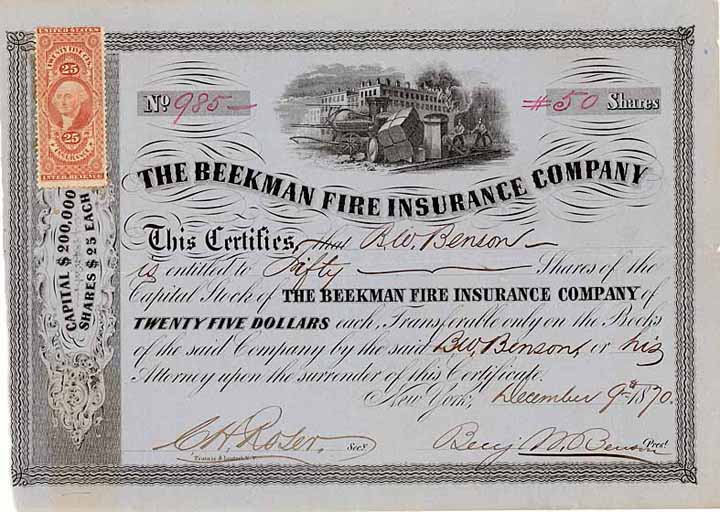 UNITED STATES
TWENTY FIVE CTS.
25
25
INSURANCE
INTER. REVENUE
CAPITAL $200,000
SHARES $25 EACH
No 985
#50 Shares
THE BEEKMAN FIRE INSURANCE COMPANY
This Certifies, that B.W. Benson
is entitled to Fifty Shares of the
Capital Stock of THE BEEKMAN FIRE INSURANCE COMPANY of
TWENTY FIVE DOLLARS each, Transferable only on the Books
of the said Company by the said B.W. Benson, or his
Attorney upon the surrender of this Certificate.
New York, December 9th 1870.
Secy
Benj. W. Benson Prest